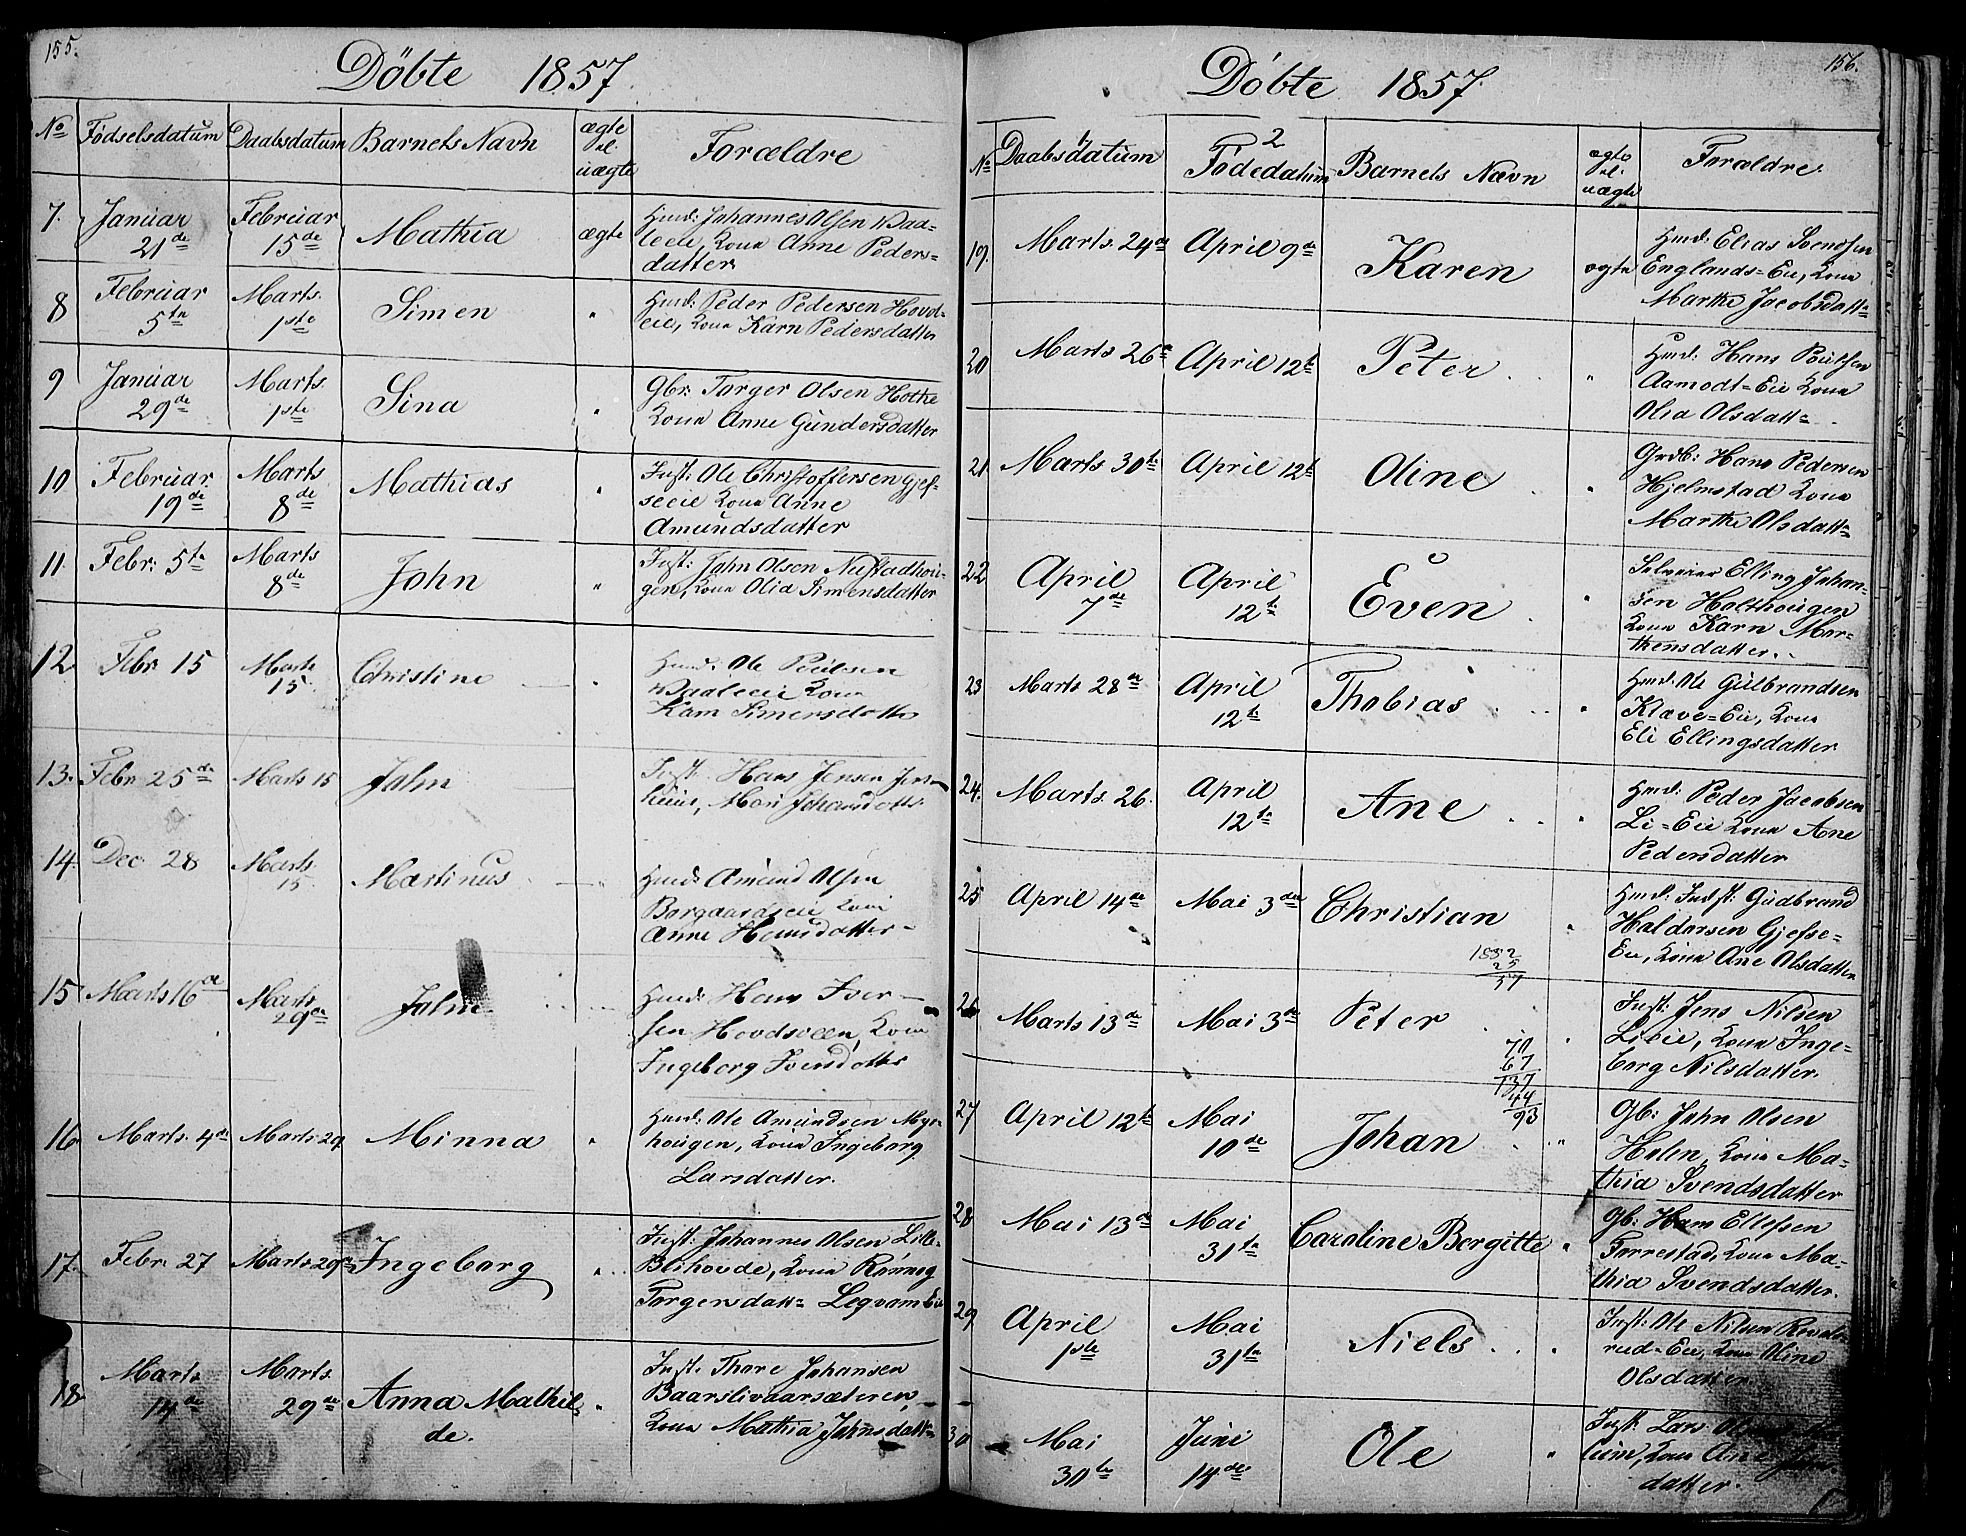 155.
Döbte 1857.
No Födselsdatum Daabsdatum Barnets Navn ægte el. uægte Forældre
7. Januar 21de Februar 15de Mathia ægte Hmd: Johannes Olsen Waa-
leeie, Kona Anne Peders-
datter
8 Februar 5te Marts 1ste Simen " Hmd: Peder Pedersen Hovd-
eie, Kona Karn Pedersdatter
9 Januar 29de Marts 1ste Sina " Gbr: Torger Olsen Hothe
Kona Anne Gundersdatter
10 Februar 19de Marts 8de Mathias " Inst: Ole Christoffersen Gjef-
seeie Kona Anne
Amundsdatter
11. Febr: 5te Marts 8de John " Inst: John Olsen Nustadhou-
gen, Kona Olia Simensdatter
12 Febr 15 Marts 15 Christine " Hmd: Ole Paulsen
Waaleeie Kona
Karn Simensdatter
13. Febr 25de Marts 15 John Inst: Hans Jensen
Mari Johansdatter
14. Dec 28 Marts 15 Martinus " Hmd: Amund Olsen
Borgaardseie Kona
Anne Hansdatter
15 Marts 16de Marts 29de Hmd: Hans Iver-
sen Hovdsveen, Kona
Ingeborg Iversdatter
16 Marts 4de Marts 29 Minna " Hmd: Ole Amundsen Myr-
hougen, Kona Ingeborg
Larsdatter.
17. Febr. 27 Marts 29de Ingeborg " Inst: Johannes Olsen Lille-
Blihovde, Kona Rönnog
Torgersdatt= Legvam Eie
18 Marts 14de Marts 29de Anna Mathil- " Inst: Thore Johansen
de. Baarslivaarsæteren,
Kona Mathia Johnsdatt=
156.
Döbte 1857.
No 1 Daabsdatum 2 Födedatum Barnets Navn ægte el. uægte Forældre.
19. Marts 24de April 9de Karen ægte Hmd: Elias Svendsen
Englands=Eie, Kona
Marthe Jacobsdatt=
20 Marts 26de April 12te Peter " Hmd: Hans Poulsen
Aamodt=Eie Kona
Olia Olsdatt=
21 Marts 30te April 12te Oline " Grdb: Hans Pedersen
Hjelmstad Kona
Marthe Olsdatt=
22 April 7de April 12te Even " Selveier Elling Johan-
sen Holthougen
Kona Karn Mor-
thensdatter.
23 Marts 28de April 12te Thobias " Hmd: Ole Gulbrandsen
Klave=Eie, Kona
Eli Ellingsdatter
24. Marts. 26. April 12te Ane " Hmd: Peder Jacobsen
Li=Eie Kona Ane
Pedersdatter
25 April 14de Mai 3die Christian " Hmd: Indst: Gudbrand
Haldorsen Gjefse=
Eie, Kona Ane Olsdatter
1832
25
57
26 Marts 13de Mai 3de Peter " Inst: Jens Nilsen
Lieie, Kona Inge-
borg Nilsdatter.
70
67
137
44
93
27 April 12te Mai 10de Johan " Gb: John Olsen
Holen, Kona Ma-
thia Svendsdatter
28 Mai 13de Mai 31te Caroline Bergitte " Gb: Hans Ellefsen
Torrestad, Kona Ma-
thia Svendsdatter.
29 April 1ste Mai 31te Niels " Inst: Ole Nilsen
rud=Eie, Kona Oline
Olsdatter
30 Mai 30te Juni 14de Ole " Inst: Lars
Kona Ane
datter.